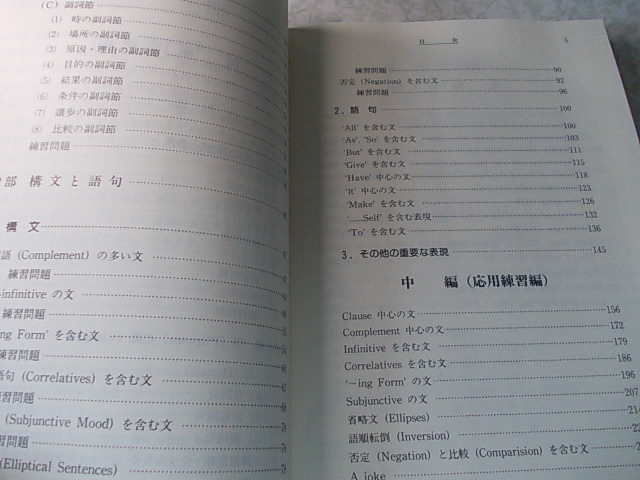 (C) 副詞節
(1) 時の副詞節
(2) 場所の副詞節
(3) 原因・理由の副詞節
(4) 目的の副詞節
(5) 結果の副詞節
(6) 条件の副詞節
(7) 譲歩の副詞節
(8) 比較の副詞節
練習問題
部 構文と語句
構文
語 (Complement) の多い文
練習問題
-infinitive の文
練習問題
ing Form' を含む文
練習問題
語句 (Correlatives) を含む文
練習問題
(Subjunctive Mood) を含む文
習問題
(Elliptical Sentences)
目 次 5
練習問題 90
否定 (Negation) を含む文 92
練習問題 96
2. 語句 100
'All' を含む文 100
'As', 'So' を含む文 103
'But' を含む文 111
'Give' を含む文 115
'Have' 中心の文 118
'It' 中心の文 123
'Make' を含む文 126
'......Self' を含む表現 132
'To' を含む文 136
3. その他の重要な表現 145
中 編 (応用練習編)
Clause 中心の文 156
Complement 中心の文 172
Infinitive を含む文 179
Correlatives を含む文 186
'−ing Form' の文 196
Subjunctive の文 207
省略文 (Ellipses) 21
語順転倒 (Inversion) 22
否定 (Negation) と比較 (Comparision) を含む文 2
A joke